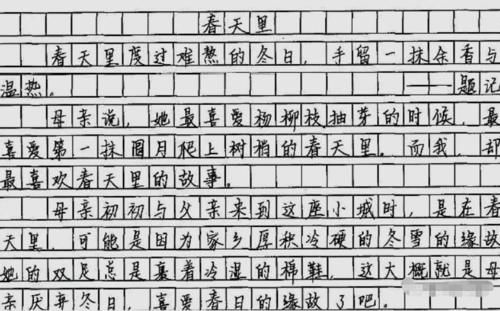 春天里
春天里度过难熬的冬日，手留一抹余香与
温热。 ——题记
母亲说，她最喜爱杨柳枝抽芽的时候，最
喜爱第一抹圆月爬上树梢的春天里。而我，却
最喜欢春天里的故事。
母亲初初与父亲来到这座小城时，是在春
天里，可能是因为家乡厚积冷硬的冬雪的缘故
她的双足总是裹着冷湿的棉鞋，这大概就是母
亲厌弃冬日，喜爱春日的缘故了吧。